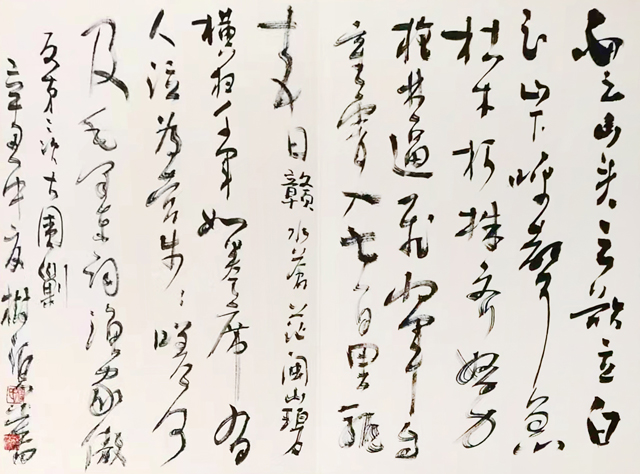 白云山头云欲立白
云山下呼聲急
枯木朽株齐努力
槍林逼飛将軍自
重霄入七百里驱
十五日贛水蒼茫閩山碧
横扫千軍如卷席有
人泣為营步步嗟何
及毛泽东词渔家傲
反第二次大圍剿
辛丑中夏樹